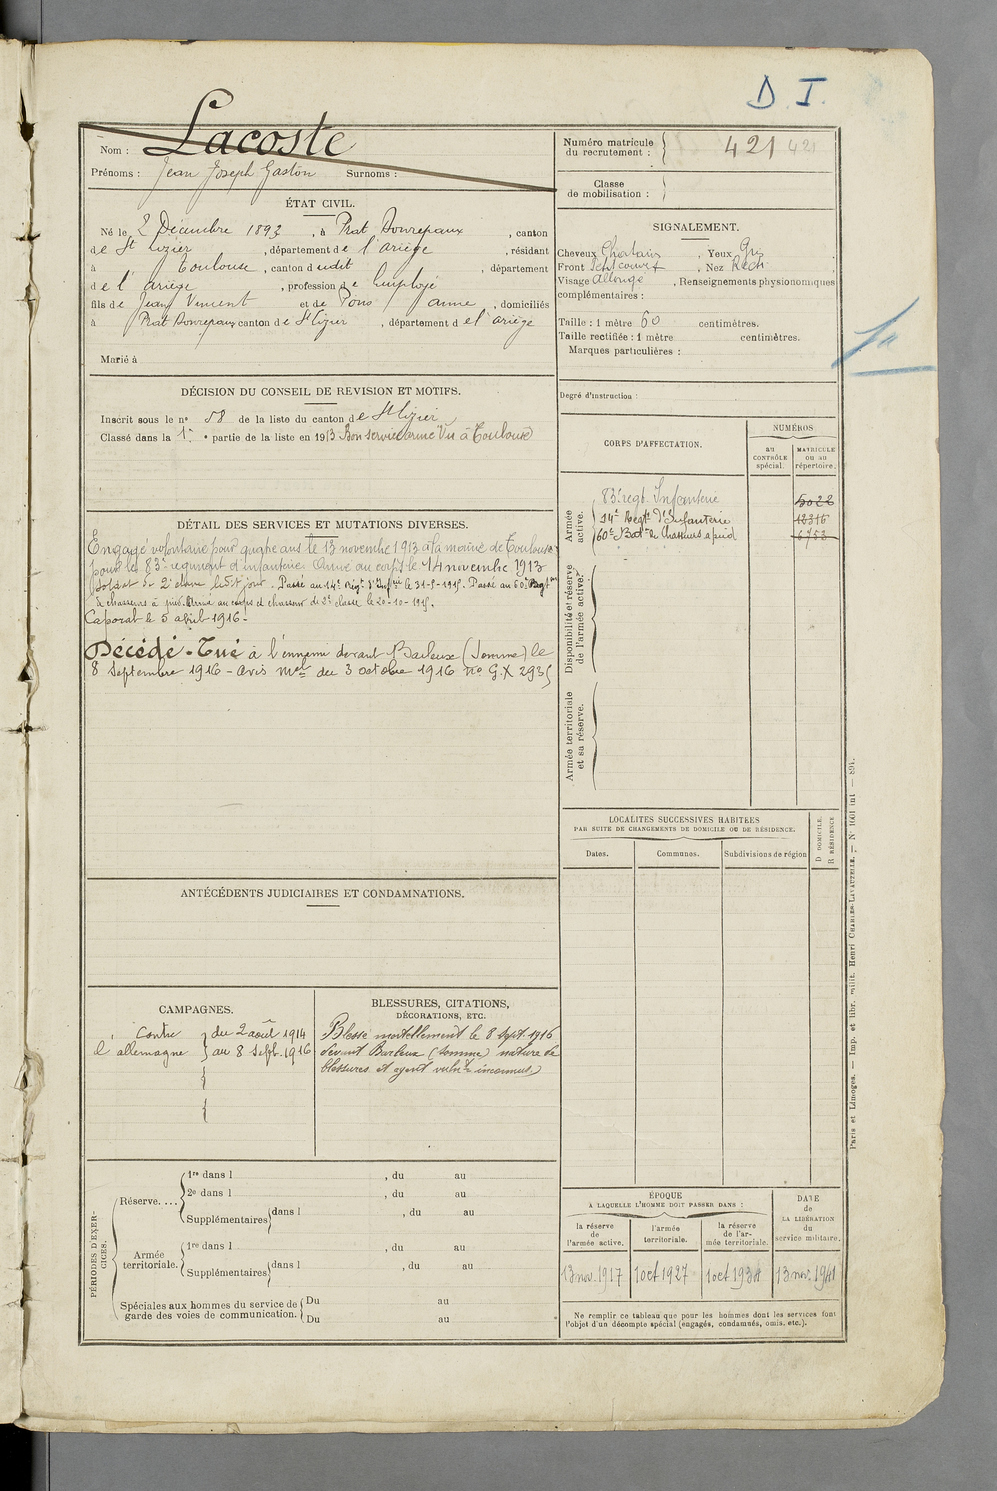 D. I.
Nom : Lacoste
Prénoms : Jean Joseph Gaston Surnoms :
Numéro matricule du recrutement : 421 421
Classe de mobilisation :
ÉTAT CIVIL.
Né le 2 Décembre 1893, à Prat Bonrepaux, canton
de St Lizier, département de l'ariège, résidant
à Toulouse, canton dudit, département
de l'ariège, profession de Employé
fils de Jean Vincent et de Pons Anne, domiciliés
à Prat Bonrepaux canton de St Lizier, département de l'ariège
Marié à
SIGNALEMENT.
Cheveux Chatains, Yeux Gris
Front , Nez Rect.
Visage allongé, Renseignements physionomiques
complémentaires :
Taille : 1 mètre 60 centimètres.
Taille rectifiée : 1 mètre centimètres.
Marques particulières :
Degré d'instruction :
DÉCISION DU CONSEIL DE REVISION ET MOTIFS.
Inscrit sous le no 58 de la liste du canton de St Lizier
Classé dans la 1e partie de la liste en 1913 Bon service armé Vu à Toulouse
DÉTAIL DES SERVICES ET MUTATIONS DIVERSES.
Engagé volontaire pour quatre ans le 13 novembre 1913 à la mairie de Toulouse
pour le 83e régiment d'infanterie. Arrivé au corps le 14 novembre 1913
soldat de 2e classe ledit jour. Passé au 14e Régt d'Infrie le 31-5-1915. Passé au 60e Bat on
de chasseurs à pied. Arrivé au corps et chasseur de 2e classe le 20-10-1915.
Caporal le 5 avril 1916.
Décédé - Tué à l'ennemi devant Barleux (Somme) le
8 Septembre 1916 - avis mel du 3 octobre 1916 no G.X 2935
CORPS D'AFFECTATION.
NUMÉROS
au CONTRÔLE spécial.
MATRICULE ou au répertoire.
Armée active.
83e regt. Infanterie 5022
14e Régt d'Infanterie 12316
60e Bat. de Chasseurs à pied 6753
Disponibilité et réserve de l'armée active.
Armée territoriale et sa réserve.
LOCALITÉS SUCCESSIVES HABITÉES
PAR SUITE DE CHANGEMENTS DE DOMICILE OU DE RÉSIDENCE.
Dates. Communes. Subdivisions de région D DOMICILE. R RÉSIDENCE
ANTÉCÉDENTS JUDICIAIRES ET CONDAMNATIONS.
CAMPAGNES.
Contre du 2 août 1914
l'allemagne au 8 Sept. 1916
BLESSURES, CITATIONS,
DÉCORATIONS, ETC.
Blessé mortellement le 8 Sept. 1916
devant Barleux (Somme) nature de
blessures et agent vulnt inconnus
PÉRIODES D'EXERCICES.
Réserve....
1re dans l , du au
2e dans l , du au
Supplémentaires dans l , du au
Armée territoriale.
1re dans l , du au
Supplémentaires dans l , du au
Spéciales aux hommes du service de garde des voies de communication.
Du au
Du au
ÉPOQUE
A LAQUELLE L'HOMME DOIT PASSER DANS :
la réserve de l'armée active. l'armée territoriale. la réserve de l'armée territoriale.
DATE de LA LIBÉRATION du service militaire.
13 nov. 1917 1 oct 1927 1 oct 1934 13 nov. 1941
Ne remplir ce tableau que pour les hommes dont les services font
l'objet d'un décompte spécial (engagés, condamnés, omis, etc.).
Paris et Limoges. — Imp. et libr. milit. Henri CHARLES-LAVAUZELLE.